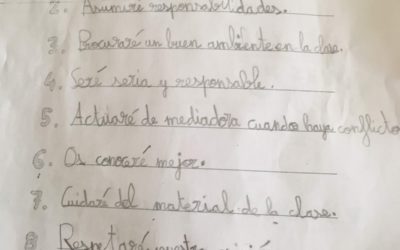 2. Asumiré responsabilidades.
3. Procuraré un buen ambiente en la clase.
4. Seré seria y responsable.
5. Actuaré de mediadora cuando haya conflicto
6. Os conocaré mejor.
7. Cuidaré del material de la clase.
8 Respetaré